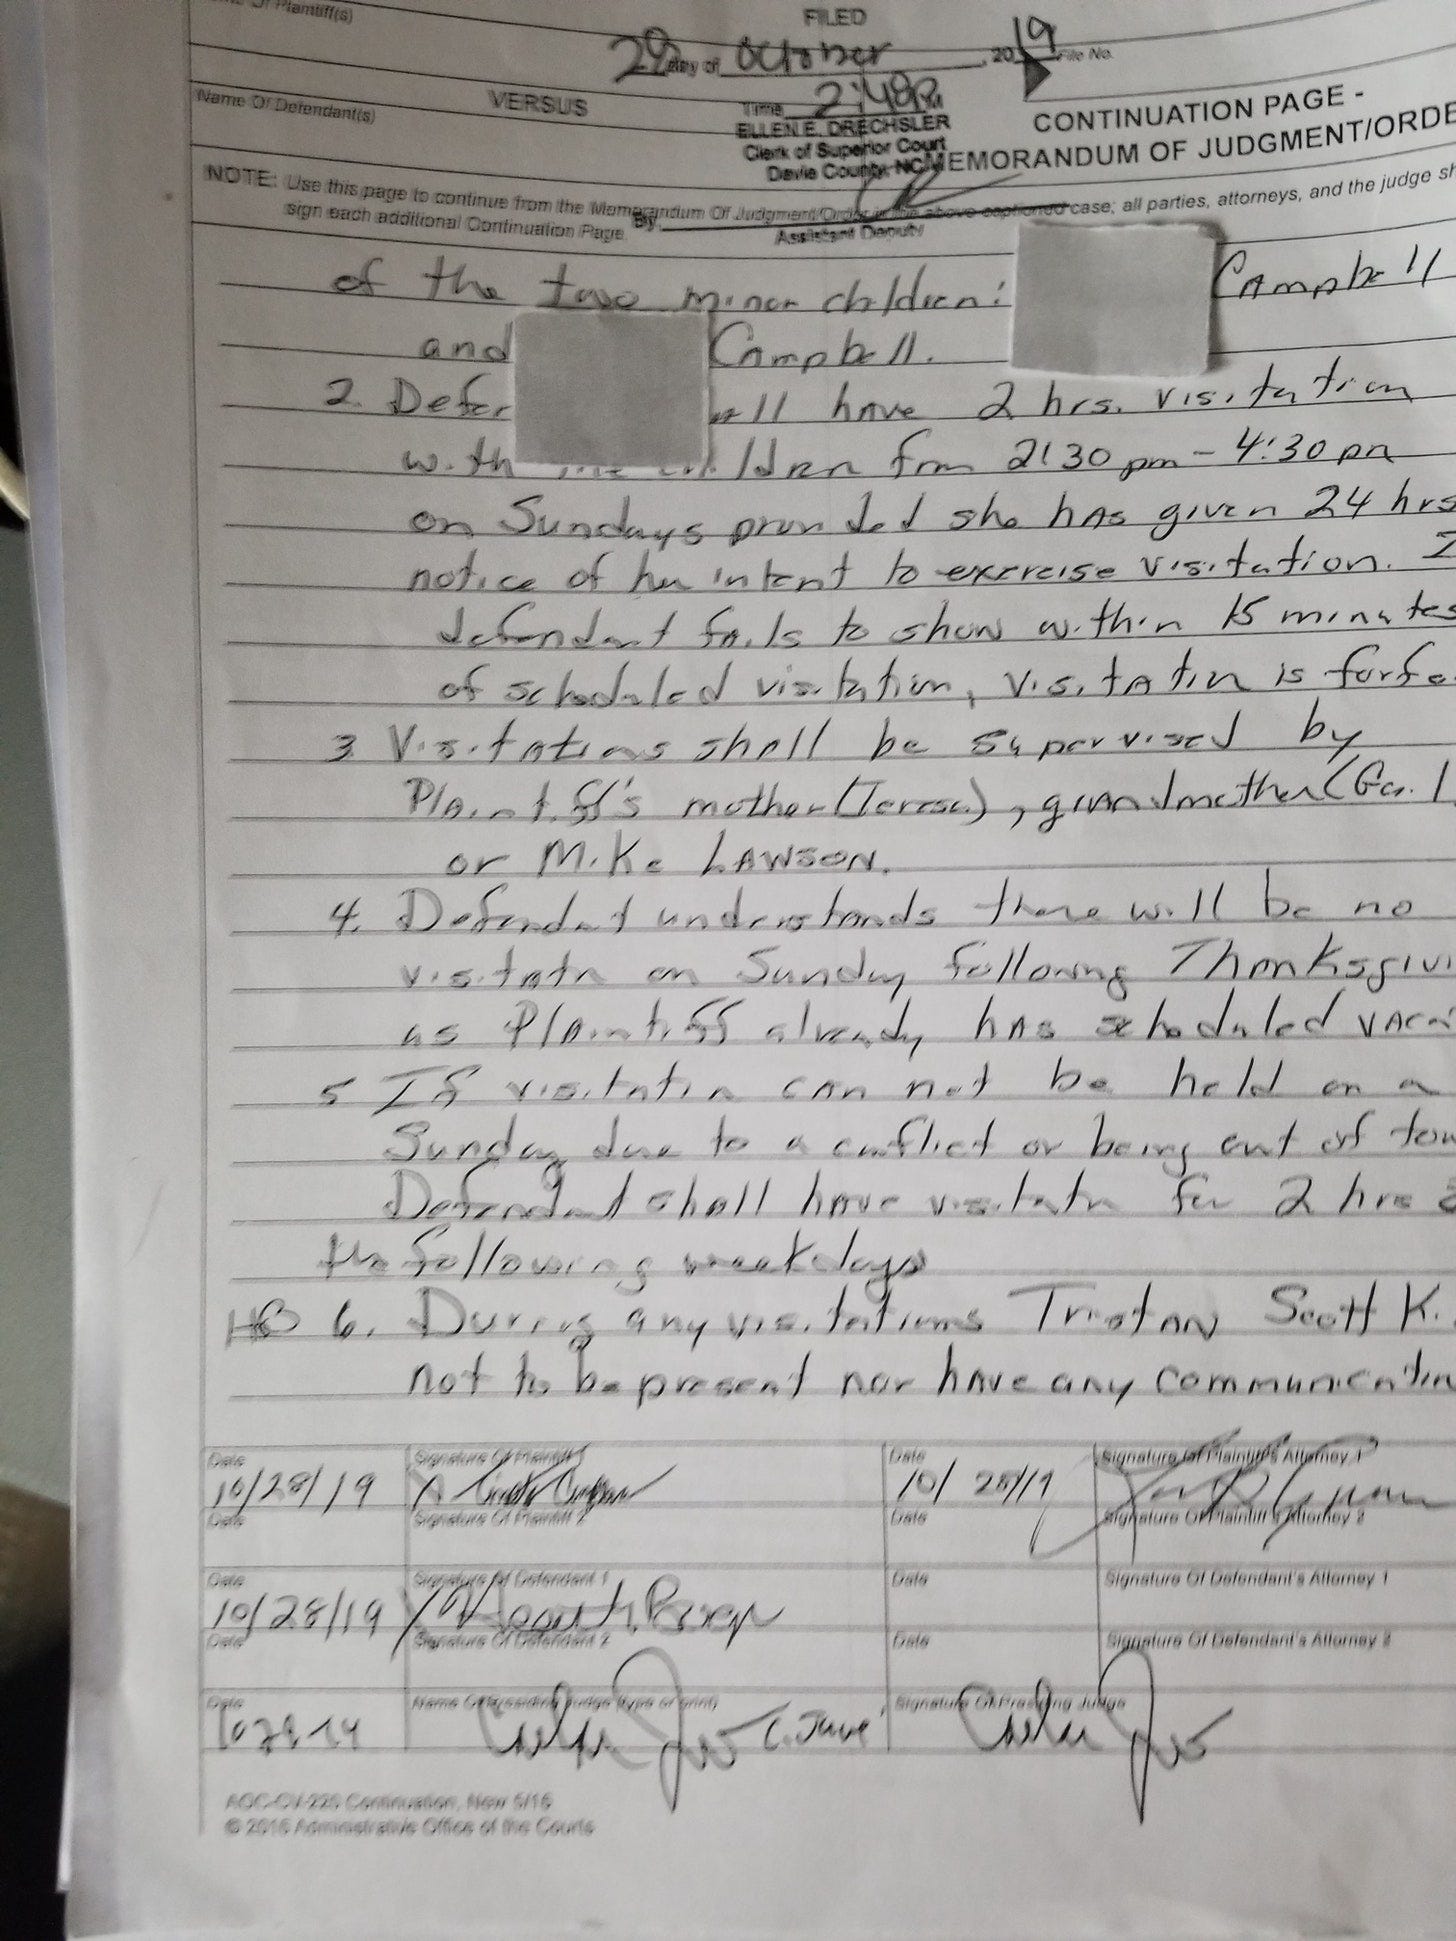 Of Plaintiff(s)
FILED
29 day of October, 2019 File No.
Name Of Defendant(s)
VERSUS
Time 2:48 PM
ELLEN E. DRECHSLER
Clerk of Superior Court
Davie County, NC
CONTINUATION PAGE -
MEMORANDUM OF JUDGMENT/ORDE
NOTE: Use this page to continue from the Memorandum Of Judgment/Order in the above captioned case; all parties, attorneys, and the judge sh
sign each additional Continuation Page.
By:
Assistant Deputy
of the two minor children: Campbell
and Campbell.
2. Defen all have 2 hrs. visitation
with the children from 2:30 pm - 4:30 pm
on Sundays provided she has given 24 hrs
notice of her intent to exercise visitation. I
defendant fails to show within 15 minutes
of scheduled visitation, visitation is forfe
3 Visitations shall be supervised by
Plaintiff's mother (Teresa), grandmother (Gail
or Mike Lawson.
4. Defendant understands there will be no
visitatn on Sunday following Thanksgivi
as Plaintiff already has scheduled vaca
5 If visitatin can not be held on a
Sunday due to a conflict or being out of tow
Defendant shall have visitatn for 2 hrs
the following weekdays
HB 6. During any visitations Tristan Scott K.
not to be present nor have any communication
Date Signature Of Plaintiff 1 Date Signature Of Plaintiff's Attorney 1
10/28/19 X 10/28/19
Date Signature Of Plaintiff 2 Date Signature Of Plaintiff's Attorney 2
Date Signature Of Defendant 1 Date Signature Of Defendant's Attorney 1
10/28/19
Date Signature Of Defendant 2 Date Signature Of Defendant's Attorney 2
Date Name Of Presiding Judge (type or print) Signature Of Presiding Judge
AOC-CV-220 Continuation, New 5/16
© 2016 Administrative Office of the Courts